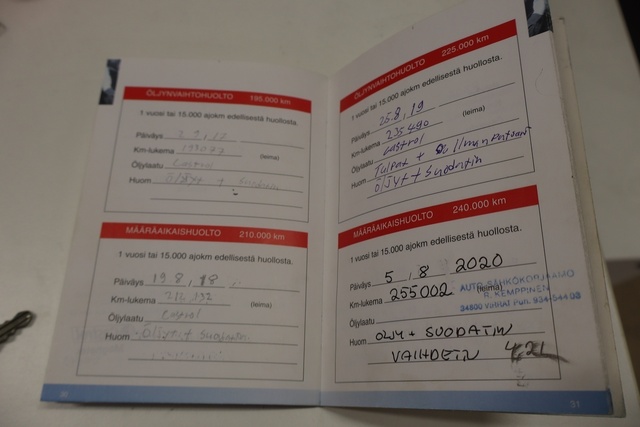 ÖLJYNVAIHTOHUOLTO 195.000 km
1 vuosi tai 15.000 ajokm edellisestä huollosta.
Päiväys
Km-lukema
(leima)
Öljylaatu Castrol
Huom öljyt + Suodatin
MÄÄRÄAIKAISHUOLTO 210.000 km
1 vuosi tai 15.000 ajokm edellisestä huollosta.
Päiväys 19.8, 18
Km-lukema 212,132
(leima)
Öljylaatu Castrol
Huom Öljyt + Suodatin
30
ÖLJYNVAIHTOHUOLTO 225.000 km
1 vuosi tai 15.000 ajokm edellisestä huollosta.
Päiväys 25.8, 19
Km-lukema 235490
(leima)
Öljylaatu Castrol
Huom Tulpat +
öljyt + Suodatin
MÄÄRÄAIKAISHUOLTO 240.000 km
1 vuosi tai 15.000 ajokm edellisestä huollosta.
Päiväys 5.8 2020
Km-lukema 255002 (leima)
AUTOSÄHKÖKORJAAMO
R. KEMPPINEN
34800 VIRRAT Puh.
Öljylaatu
Huom ÖLJY + SUODATIN
VAIHDETTIN 4,2L
31